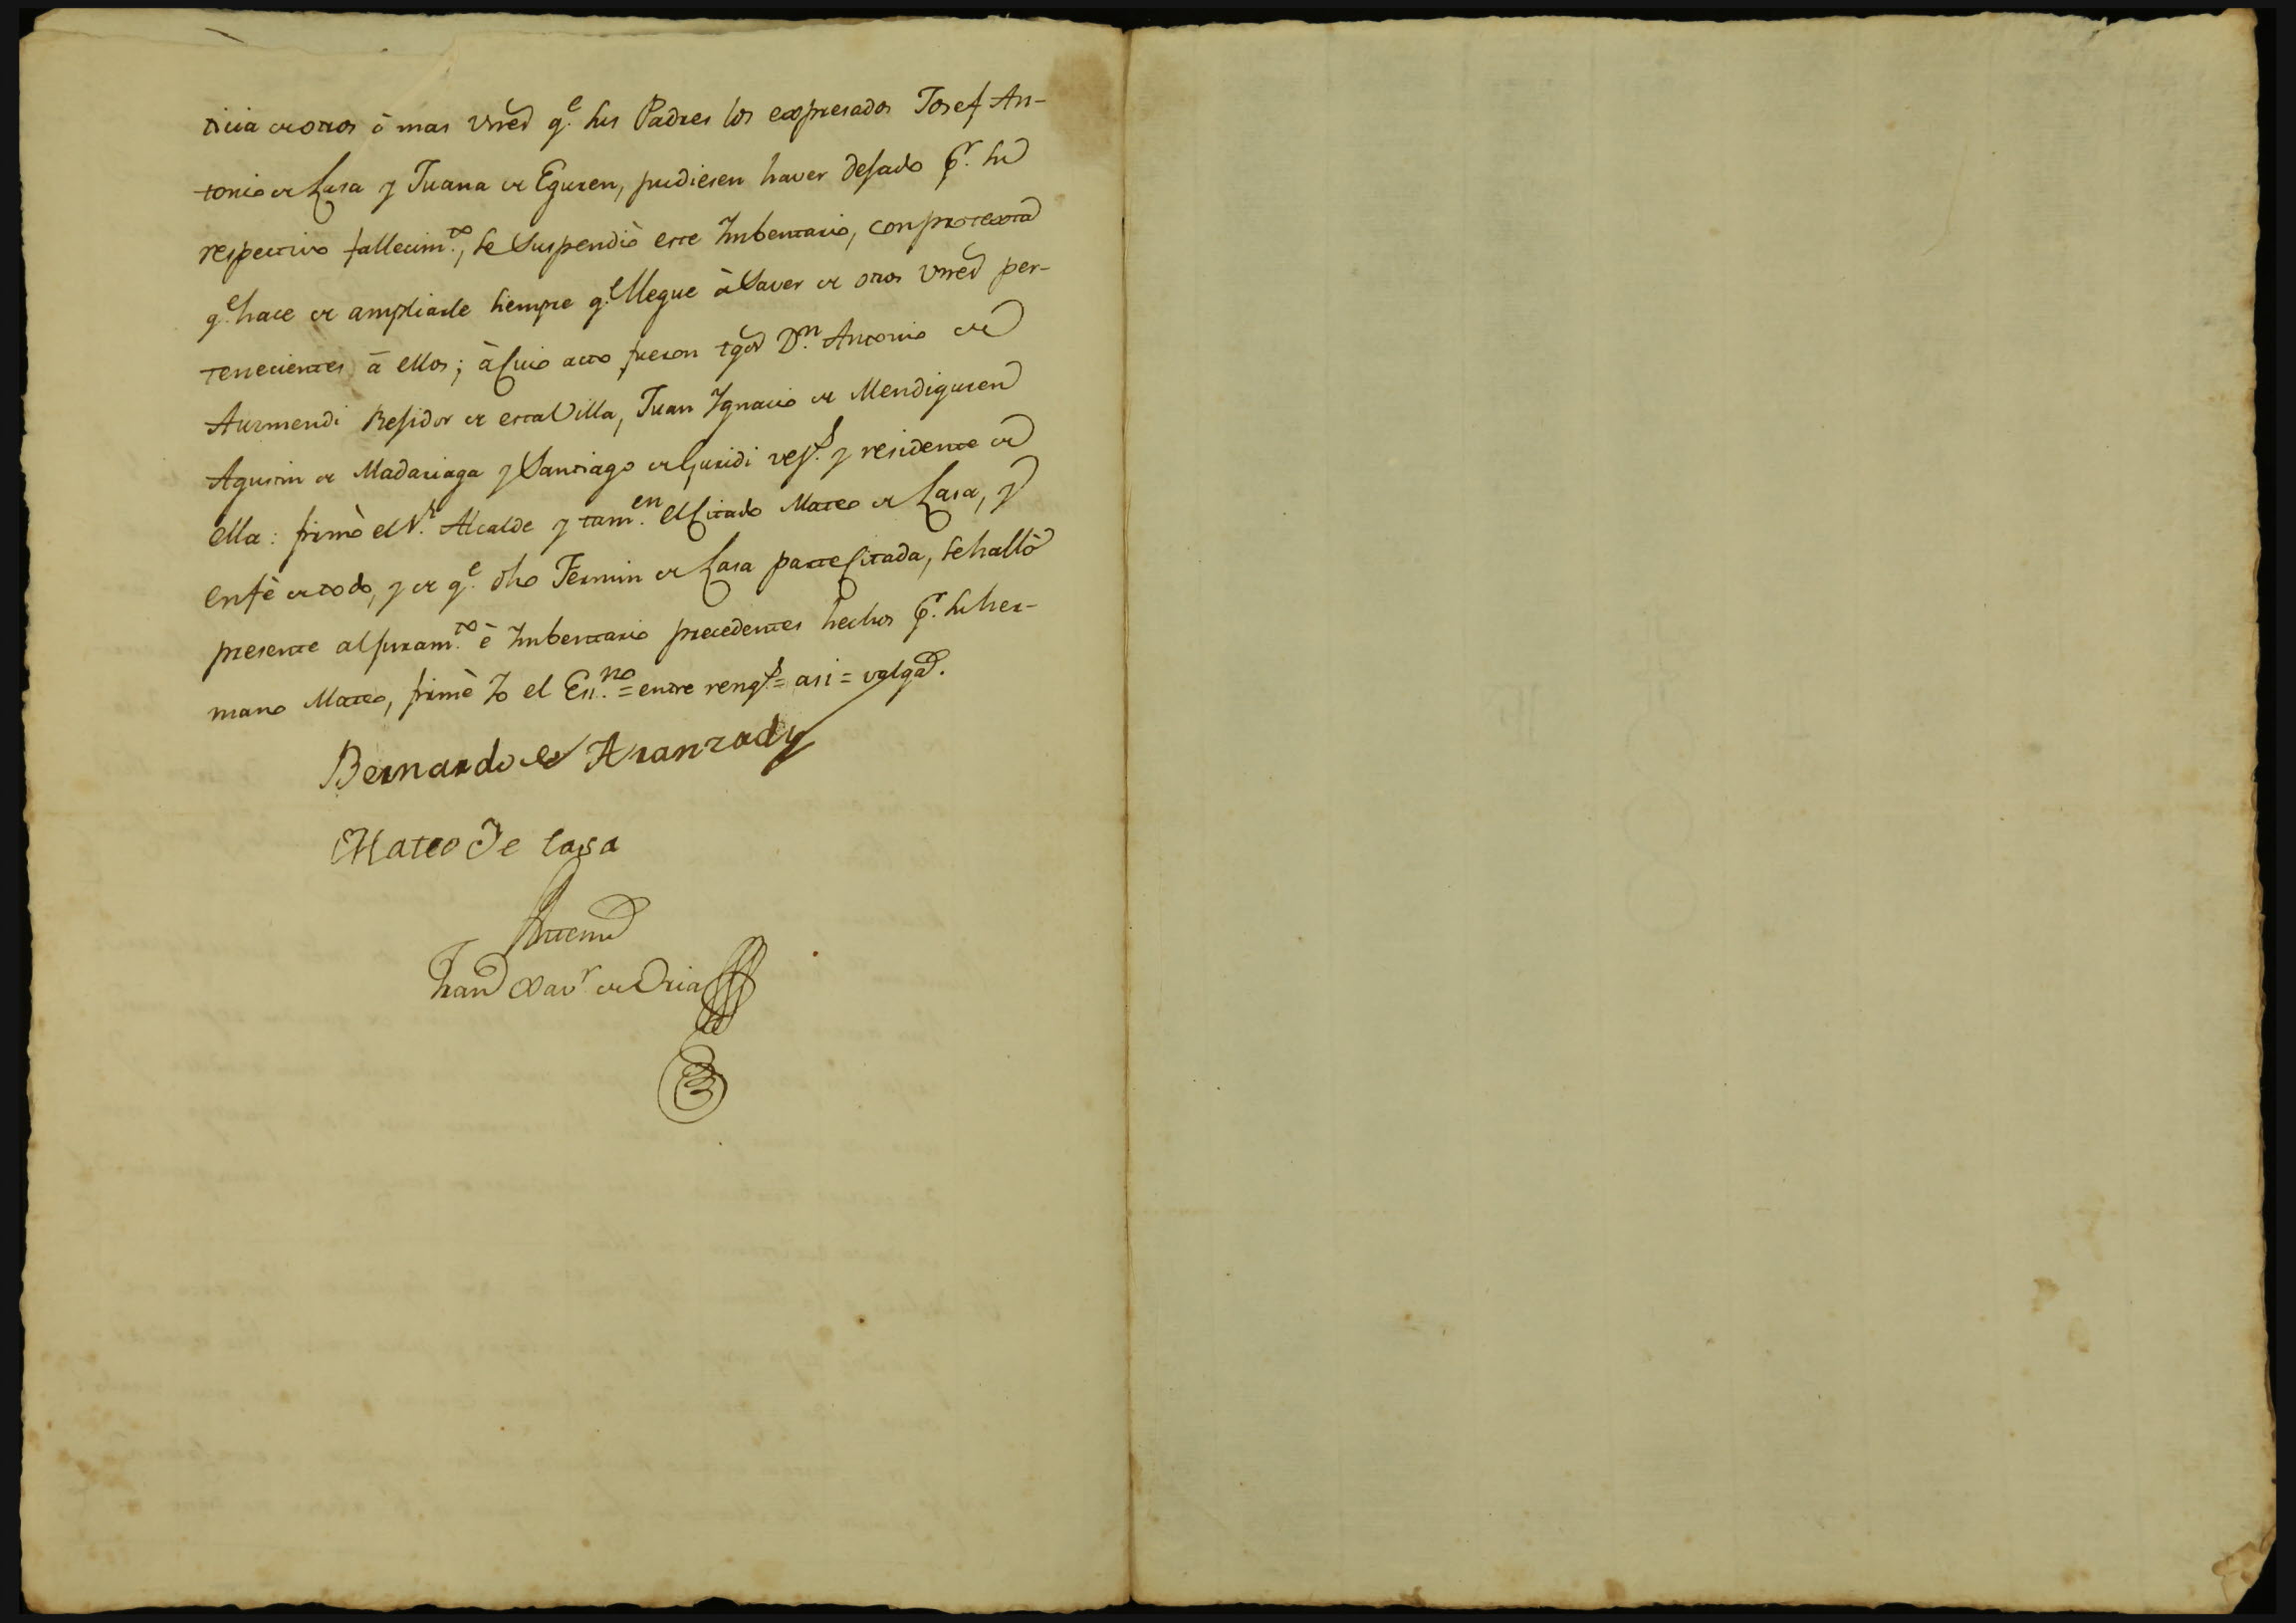 ticia de otros ò mas vnes q.e sus Padres los expresados Josef An-
tonio de Lasa y Juana de Eguren, pudiesen haver desado p.r su
respectivo fallecim.to, se suspendiò este Imbentario, con protexta
q.e hace de ampliarle siempre q.e llegue à saver de otros vnes per-
tenecientes à ellos; à cuio acto fueron tgos D.n Antonio de
Aurmendi Residor de esta Villa, Juan Ygnacio de Mendiguren
Agustin de Madariaga y Santiago de Guridi vez.s y residente de
ella: firmò el S.r Alcalde y tam.en el citado Mateo de Lasa, y
en fè de todo, y de q.e dho Fermin de Lasa parte citada, se hallò
presente al juram.to è Imbentario precedentes hechos p.r su her-
mano Mateo, firmè Yo el Es.no = entre reng.s = asi = valga.
Bernardo de Aranzady
Mateo De lasa
Antemi
Fran Xav.r de Oria